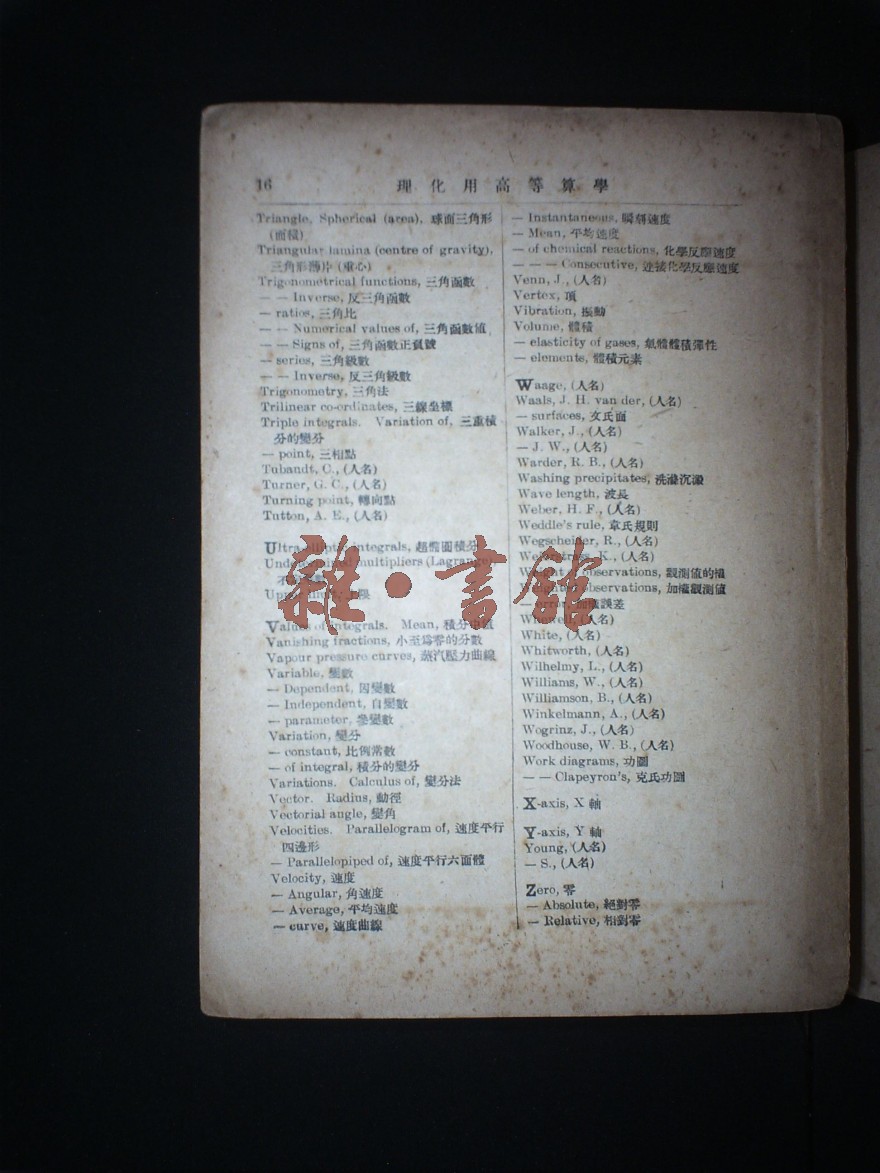 16
理化用高等算學
Triangle, Spherical (area), 球面三角形
(面積)
Triangular lamina (centre of gravity),
三角形薄片 (重心)
Trigonometrical functions, 三角函數
— — Inverse, 反三角函數
— ratios, 三角比
— — Numerical values of, 三角函數值
— — Signs of, 三角函數正負號
— series, 三角級數
— — Inverse, 反三角級數
Trigonometry, 三角法
Trilinear co-ordinates, 三線坐標
Triple integrals. Variation of, 三重積
分的變分
— point, 三相點
Tubandt, C., (人名)
Turner, G. C., (人名)
Turning point, 轉向點
Tutton, A. E., (人名)
integrals, 超橢圓積分
multipliers (Lagrange)
Values of integrals. Mean, 積分
Vanishing fractions, 小至爲零的分數
Vapour pressure curves, 蒸汽壓力曲線
Variable, 變數
— Dependent, 因變數
— Independent, 自變數
— parameter, 參變數
Variation, 變分
— constant, 比例常數
— of integral, 積分的變分
Variations. Calculus of, 變分法
Vector. Radius, 動徑
Vectorial angle, 變角
Velocities. Parallelogram of, 速度平行
四邊形
— Parallelopiped of, 速度平行六面體
Velocity, 速度
— Angular, 角速度
— Average, 平均速度
— curve, 速度曲線
— Instantaneous, 瞬刻速度
— Mean, 平均速度
— of chemical reactions, 化學反應速度
— — — Consecutive, 連接化學反應速度
Venn, J., (人名)
Vertex, 頂
Vibration, 振動
Volume, 體積
— elasticity of gases, 氣體體積彈性
— elements, 體積元素
Waage, (人名)
Waals, J. H. van der, (人名)
— surfaces, 文氏面
Walker, J., (人名)
— J. W., (人名)
Warder, R. B., (人名)
Washing precipitates, 洗滌沉澱
Wave length, 波長
Weber, H. F., (人名)
Weddle's rule, 韋氏規則
Wegscheider, R., (人名)
Weierstrass, K., (人名)
observations, 觀測值的權
observations, 加權觀測值
— error, 加權誤差
Whewell, (人名)
White, (人名)
Whitworth, (人名)
Wilhelmy, L., (人名)
Williams, W., (人名)
Williamson, B., (人名)
Winkelmann, A., (人名)
Wogrinz, J., (人名)
Woodhouse, W. B., (人名)
Work diagrams, 功圖
— — Clapeyron's, 克氏功圖
X-axis, X 軸
Y-axis, Y 軸
Young, (人名)
— S., (人名)
Zero, 零
— Absolute, 絕對零
— Relative, 相對零
雜·書館